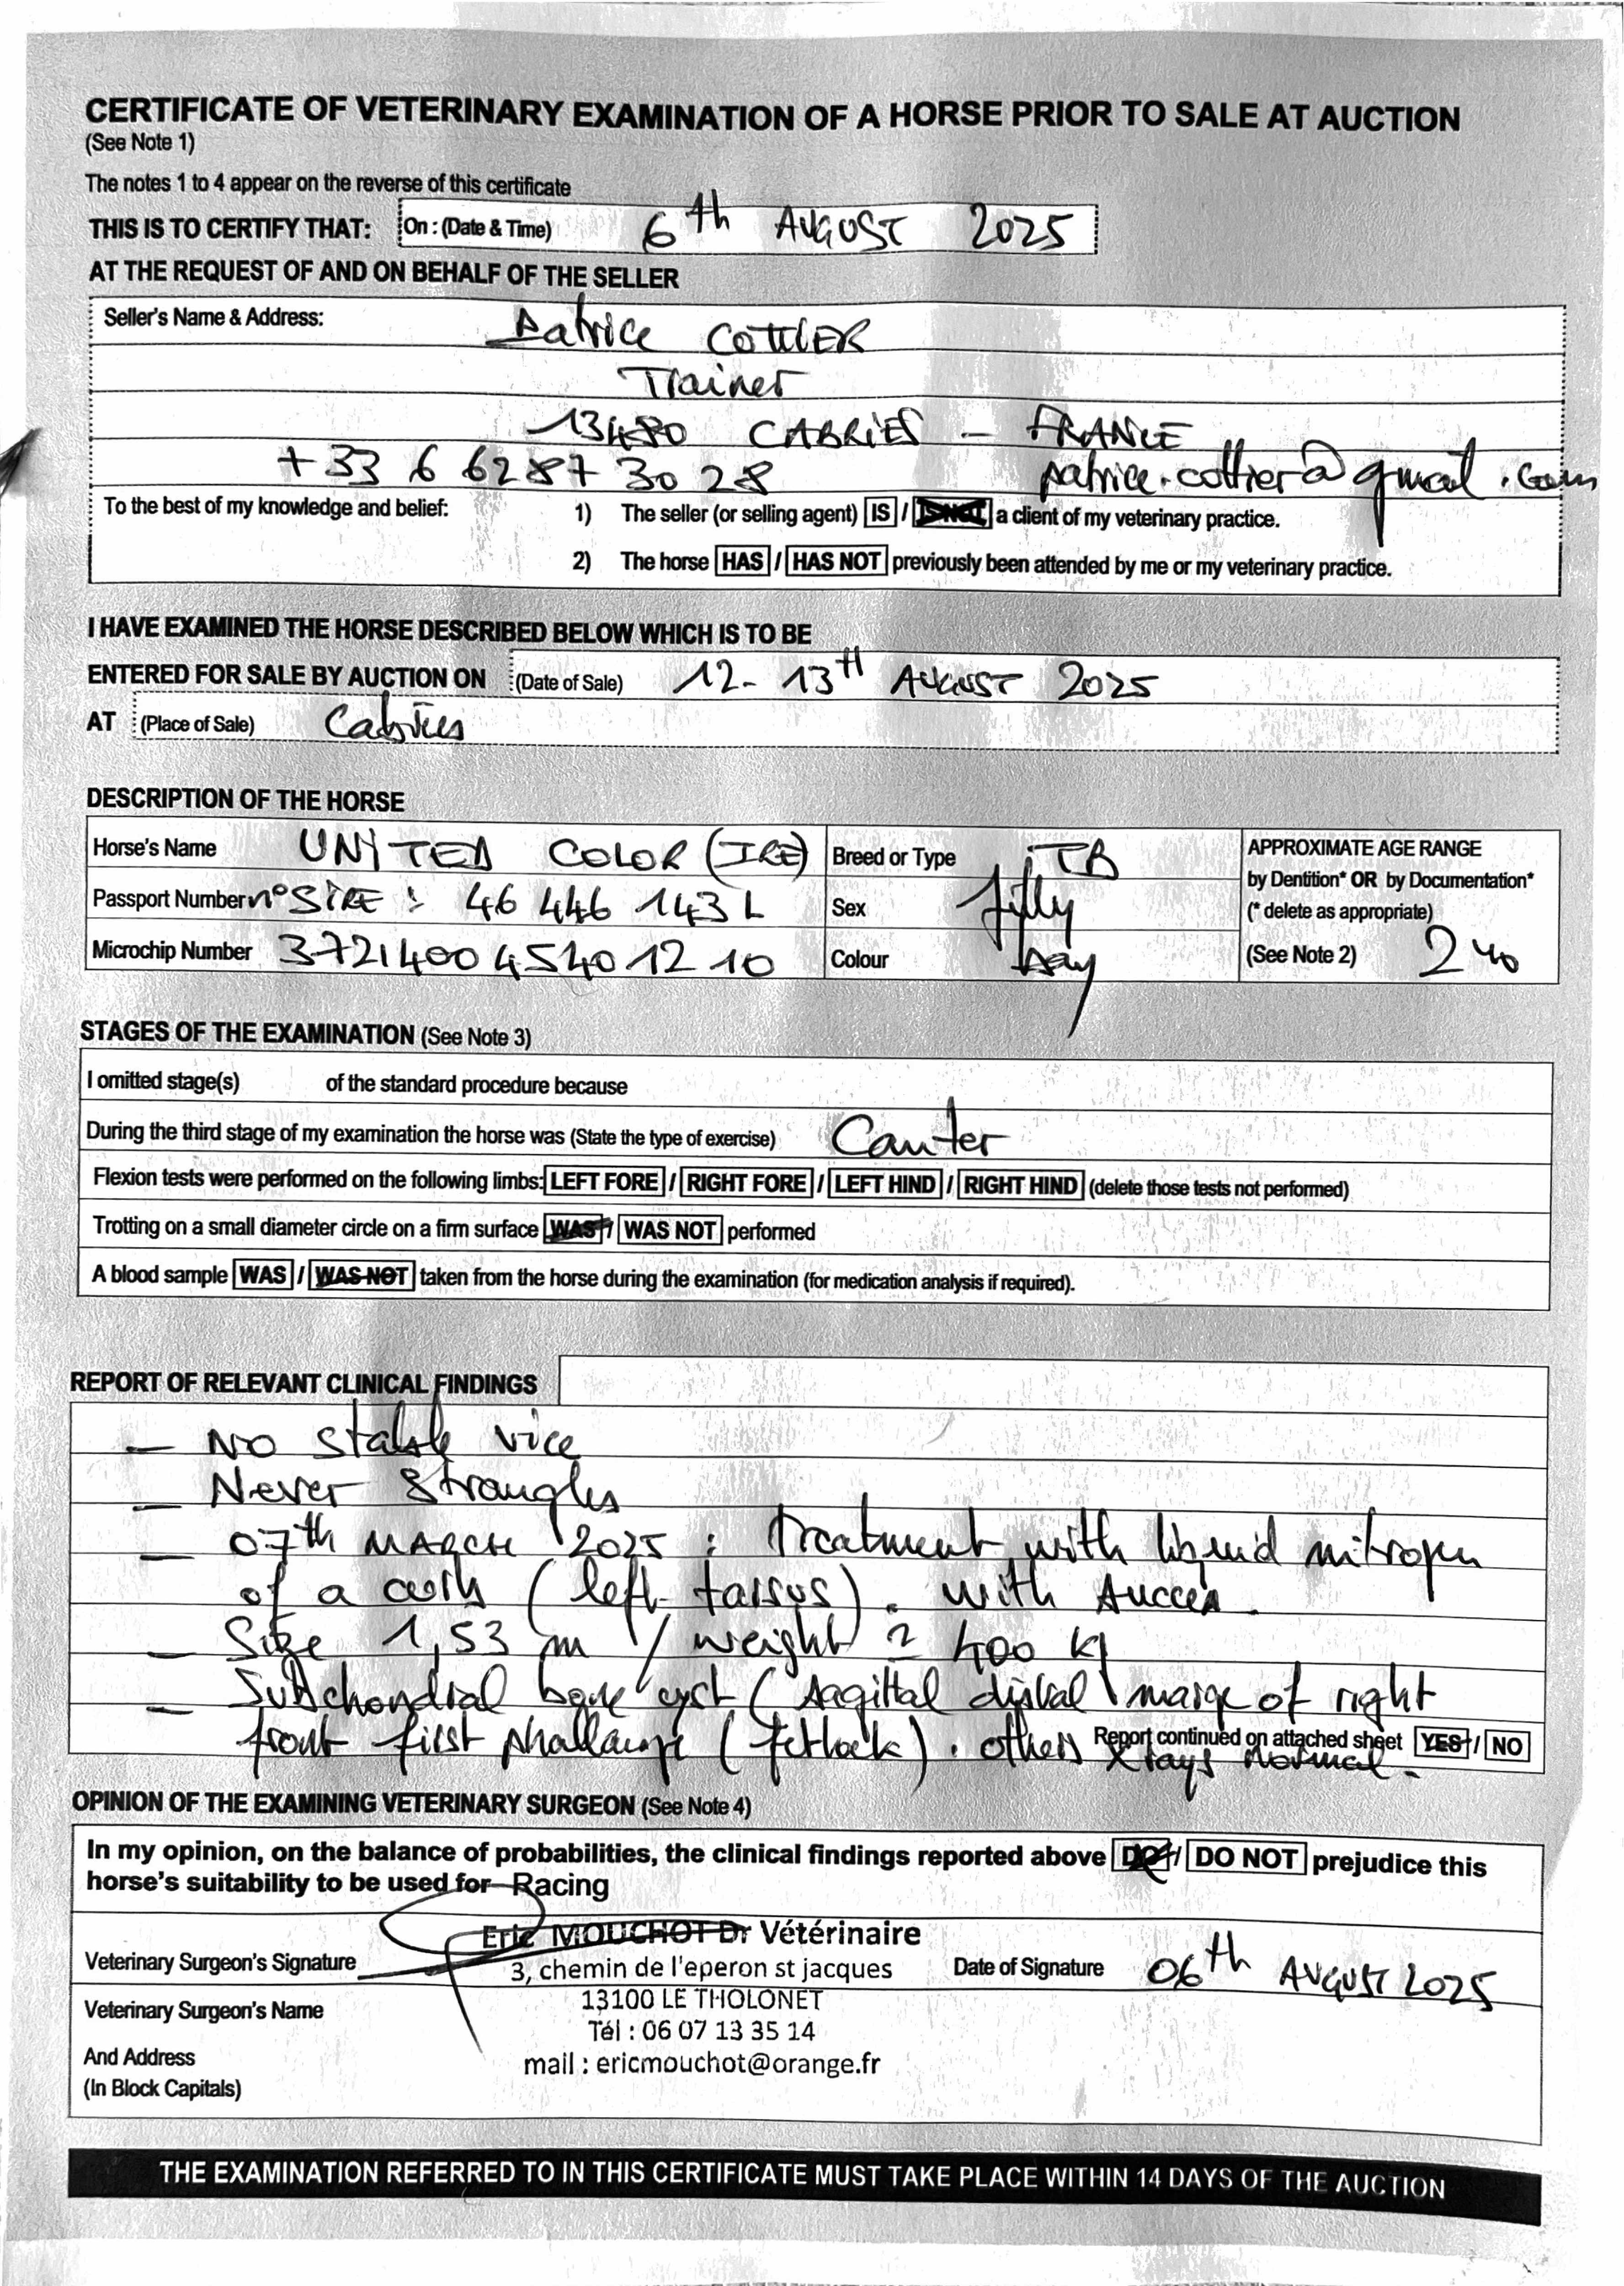 CERTIFICATE OF VETERINARY EXAMINATION OF A HORSE PRIOR TO SALE AT AUCTION
(See Note 1)
The notes 1 to 4 appear on the reverse of this certificate
THIS IS TO CERTIFY THAT: On : (Date & Time) 6th AUGUST 2025
AT THE REQUEST OF AND ON BEHALF OF THE SELLER
Seller's Name & Address: Patrice COTTIER
Trainer
13480 CABRIES - FRANCE
+33 6 6287 30 28 patrice.cottier@gmail.com
To the best of my knowledge and belief: 1) The seller (or selling agent) IS / IS NOT a client of my veterinary practice.
2) The horse HAS / HAS NOT previously been attended by me or my veterinary practice.
I HAVE EXAMINED THE HORSE DESCRIBED BELOW WHICH IS TO BE
ENTERED FOR SALE BY AUCTION ON (Date of Sale) 12-13th AUGUST 2025
AT (Place of Sale) Cabries
DESCRIPTION OF THE HORSE
Horse's Name UNITED COLOR (IRE) Breed or Type TB APPROXIMATE AGE RANGE
by Dentition* OR by Documentation*
Passport Number n° SIRE : 46 446 143 L Sex filly (* delete as appropriate)
Microchip Number 372140045401210 Colour bay (See Note 2) 2 yo
STAGES OF THE EXAMINATION (See Note 3)
I omitted stage(s) of the standard procedure because
During the third stage of my examination the horse was (State the type of exercise) Canter
Flexion tests were performed on the following limbs: LEFT FORE / RIGHT FORE / LEFT HIND / RIGHT HIND (delete those tests not performed)
Trotting on a small diameter circle on a firm surface WAS / WAS NOT performed
A blood sample WAS / WAS NOT taken from the horse during the examination (for medication analysis if required).
REPORT OF RELEVANT CLINICAL FINDINGS
- No stable vice
- Never strangles
- 07th MARCH 2025 : treatment with liquid nitrogen
of a (left tarsus). with succes.
- Size 1,53 m / weight ≈ 400 kg
- Subchondral bone cyst (sagittal distal marge of right
front first phallange (fetlock). others Xrays normal.
Report continued on attached sheet YES / NO
OPINION OF THE EXAMINING VETERINARY SURGEON (See Note 4)
In my opinion, on the balance of probabilities, the clinical findings reported above DO / DO NOT prejudice this
horse's suitability to be used for Racing
Eric MOUCHOT Dr Vétérinaire
Veterinary Surgeon's Signature 3, chemin de l'eperon st jacques Date of Signature 06th AUGUST 2025
13100 LE THOLONET
Veterinary Surgeon's Name
Tél : 06 07 13 35 14
And Address
mail : ericmouchot@orange.fr
(In Block Capitals)
THE EXAMINATION REFERRED TO IN THIS CERTIFICATE MUST TAKE PLACE WITHIN 14 DAYS OF THE AUCTION